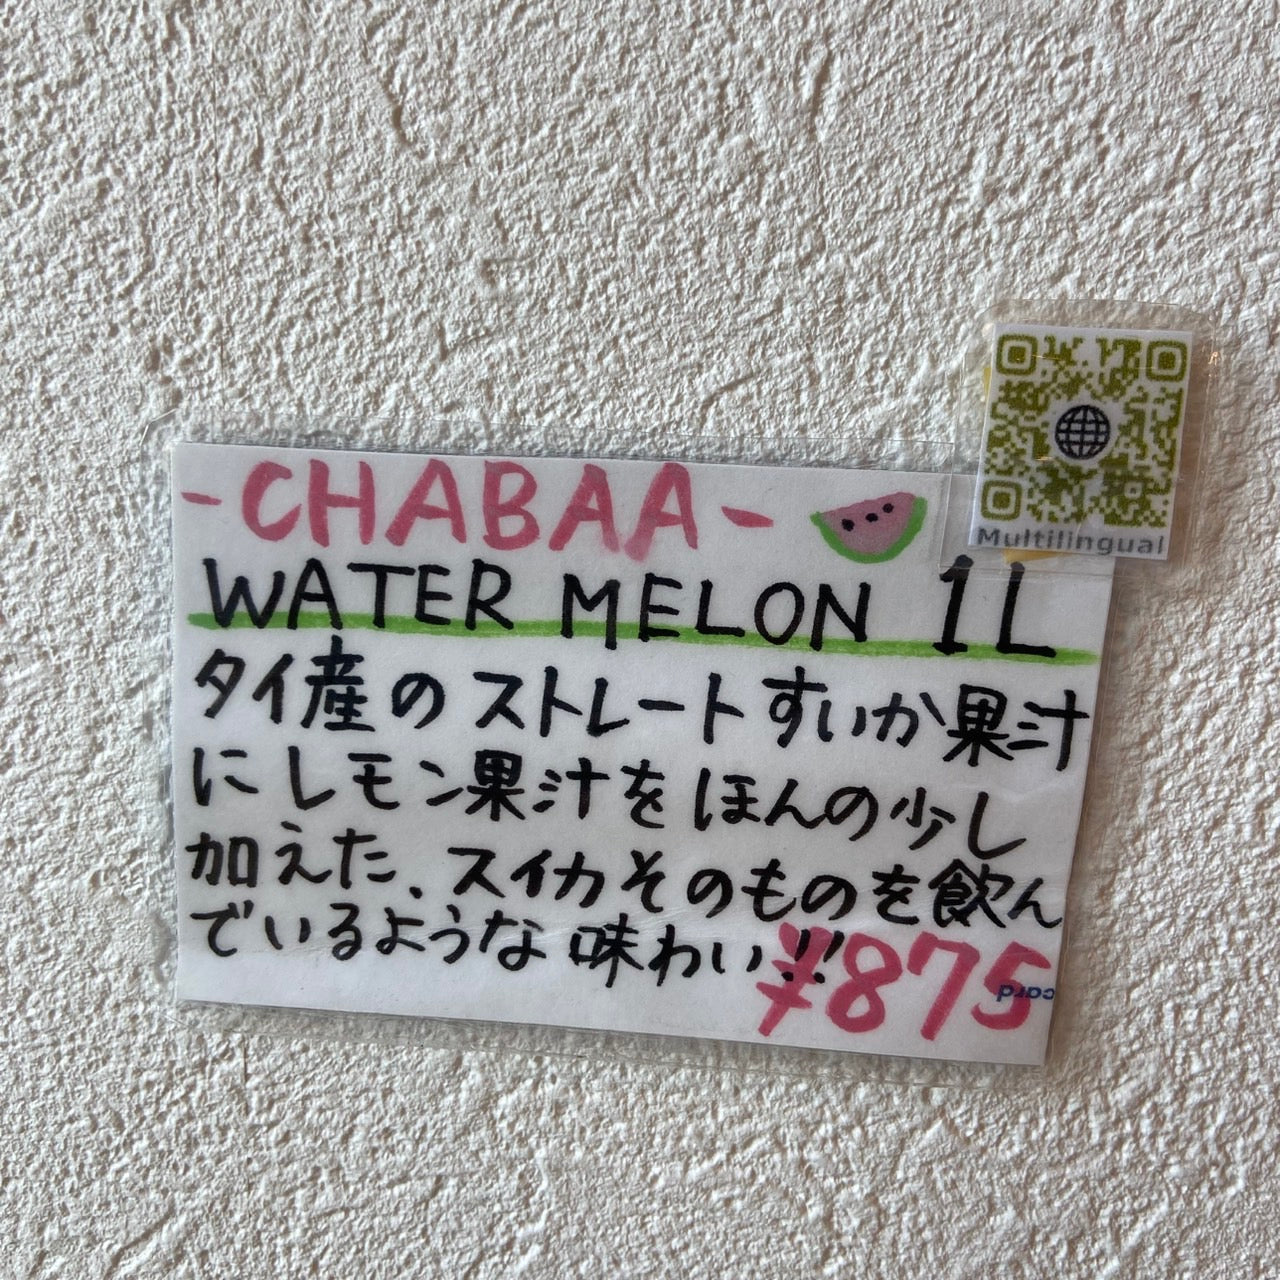 -CHABAA-
Multilingual
WATER MELON 1L
タイ産のストレートすいか果汁
にレモン果汁をほんの少し
加えた、スイカそのものを飲ん
でいるような味わい!!
¥875
card